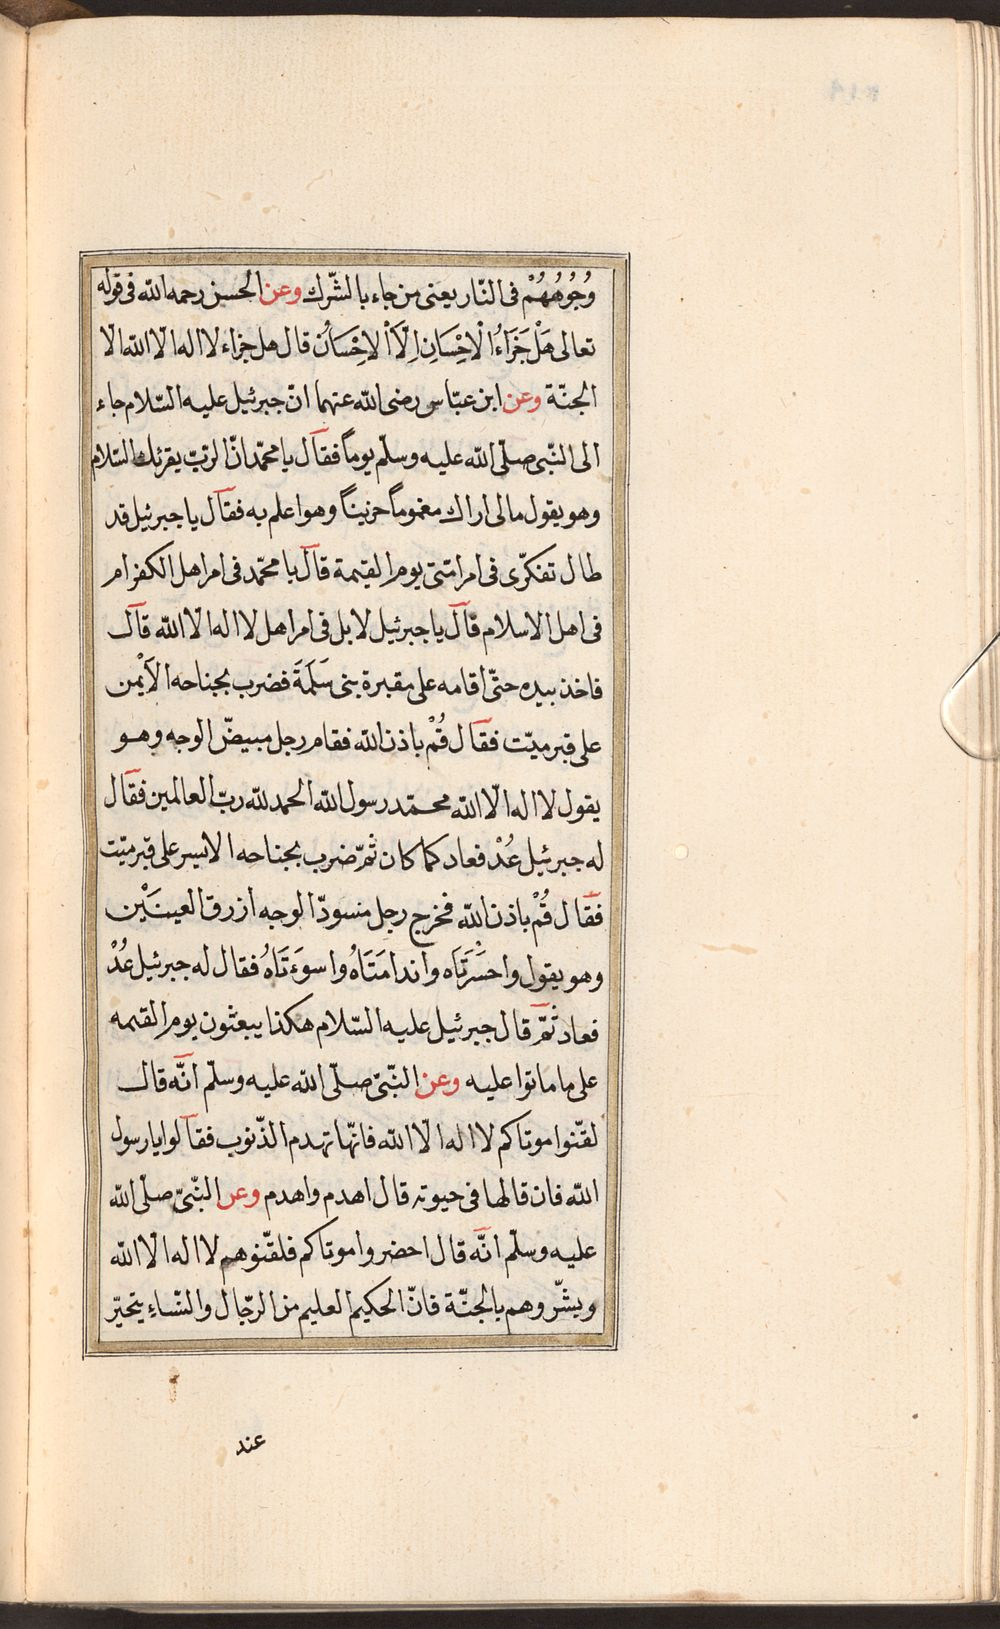 وُجُوهُهُمْ فى النّار يعنى من جاء بالشّرك وعن الحسن رحمه الله فى قوله
تعالى هَلْ جَزَاءُ الْاِحْسَانِ اِلَّا الْاِحْسَانُ قال هل جزاء لا اله الا الله الا
الجنّة وعن ابن عبّاس رضى الله عنهما انّ جبرئيل عليه السّلام جاء
الى النّبى صلّى الله عليه وسلّم يوماً فقال يا محمّد انّ الربّ يقرئك السّلام
وهو يقول مالى اراك مغموماً حزيناً وهو اعلم به فقال يا جبرئيل قد
طال تفكّرى فى امر امّتى يوم القيمة قال يا محمّد فى امر اهل الكفر ام
فى اهل الاسلام قال يا جبرئيل لا بل فى امر اهل لا اله الّا الله قال
فاخذ بيده حتّى اقامه على مقبرة بنى سَلَمَةَ فضرب بجناحه الاَيْمن
على قبر ميّت فقال قُمْ باذن الله فقام رجل مبيضّ الوجه وهو
يقول لا اله الّا الله محمّد رسول الله الحمد لله ربّ العالمين فقال
له جبرئيل عُدْ فعاد كما كان ثمّ ضرب بجناحه الايسر على قبر ميّت
فقال قُمْ باذن الله فخرج رجل مسودّ الوجه ازرق العينَيْن
وهو يقول واحَسْرَتَاه واندامَتَاهُ واسوَءَتَاهُ فقال له جبرئيل عُدْ
فعاد ثمّ قال جبرئيل عليه السّلام هكذا يبعثون يوم القيمه
على ما ماتوا عليه وعن النّبىّ صلّى الله عليه وسلّم انّه قال
لقّنوا موتاكم لا اله الّا الله فانّها تهدم الذّنوب فقالوا يا رسول
الله فان قالها فى حيوته قال اهدم واهدم وعن النّبىّ صلّى الله
عليه وسلّم انّه قال احضروا موتاكم فلقّنوهم لا اله الّا الله
وبشّروهم بالجنّة فانّ الحكيم العليم من الرّجال والنّساء يتحيّر
عند